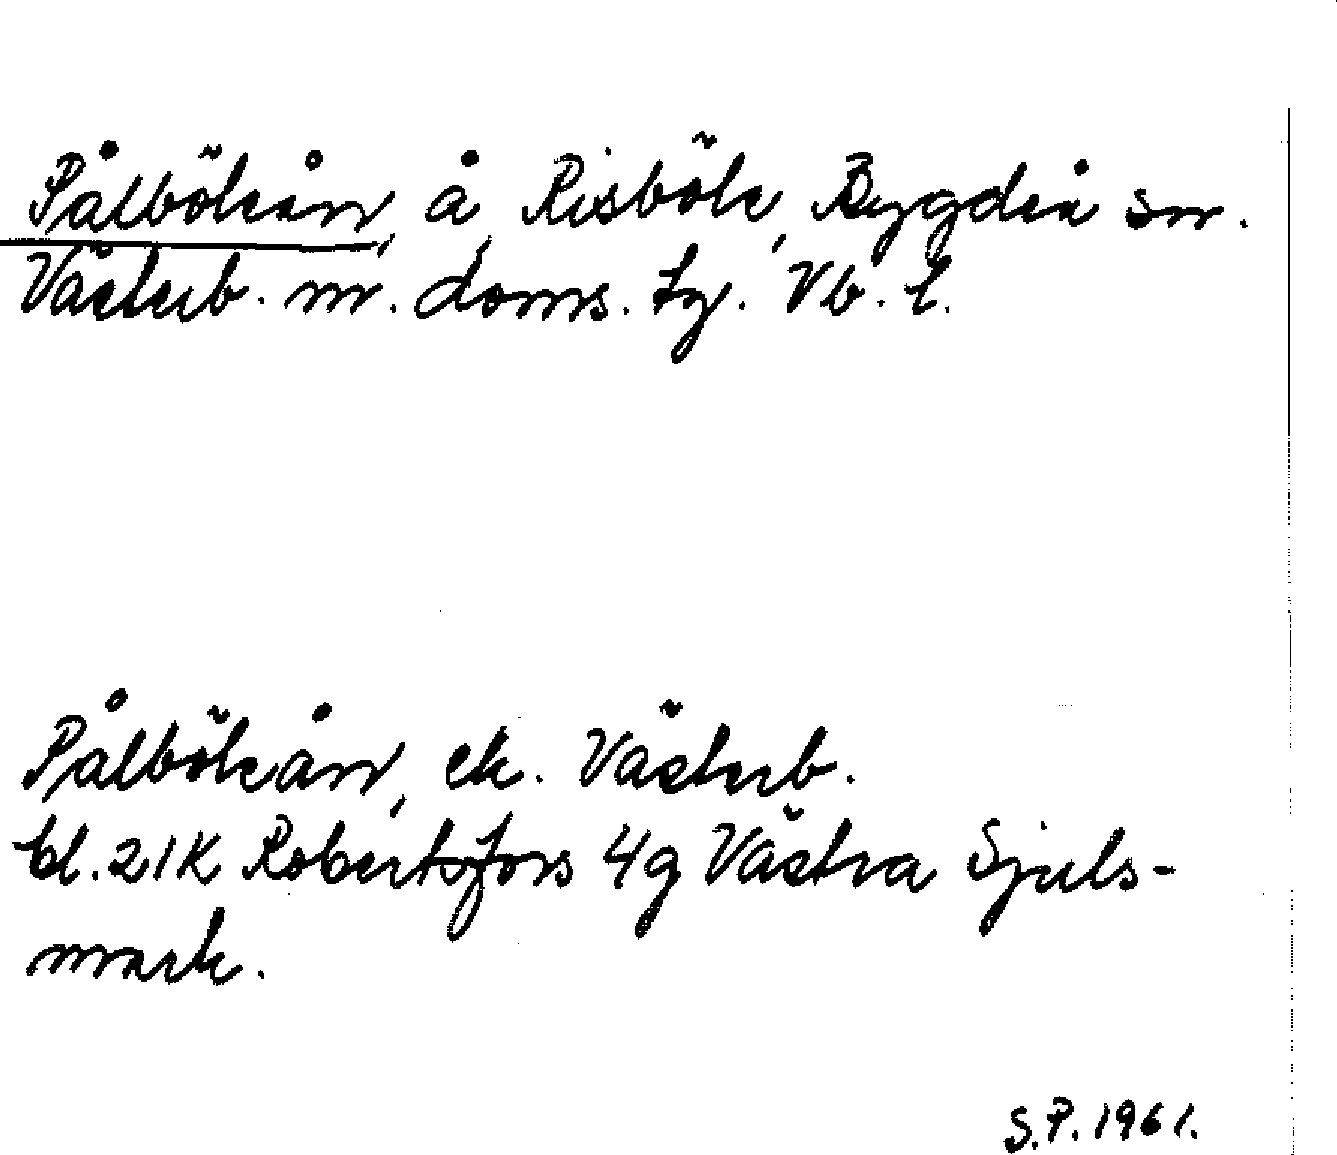 Pålböleån, å, Risböle, Bygdeå sn.
Västerb. n. doms. tg. Vb. l.
Pålböleån, ek. Västerb.
bl. 21K Robertsfors 4g Västra Sjuls-
mark.
S.P. 1961.